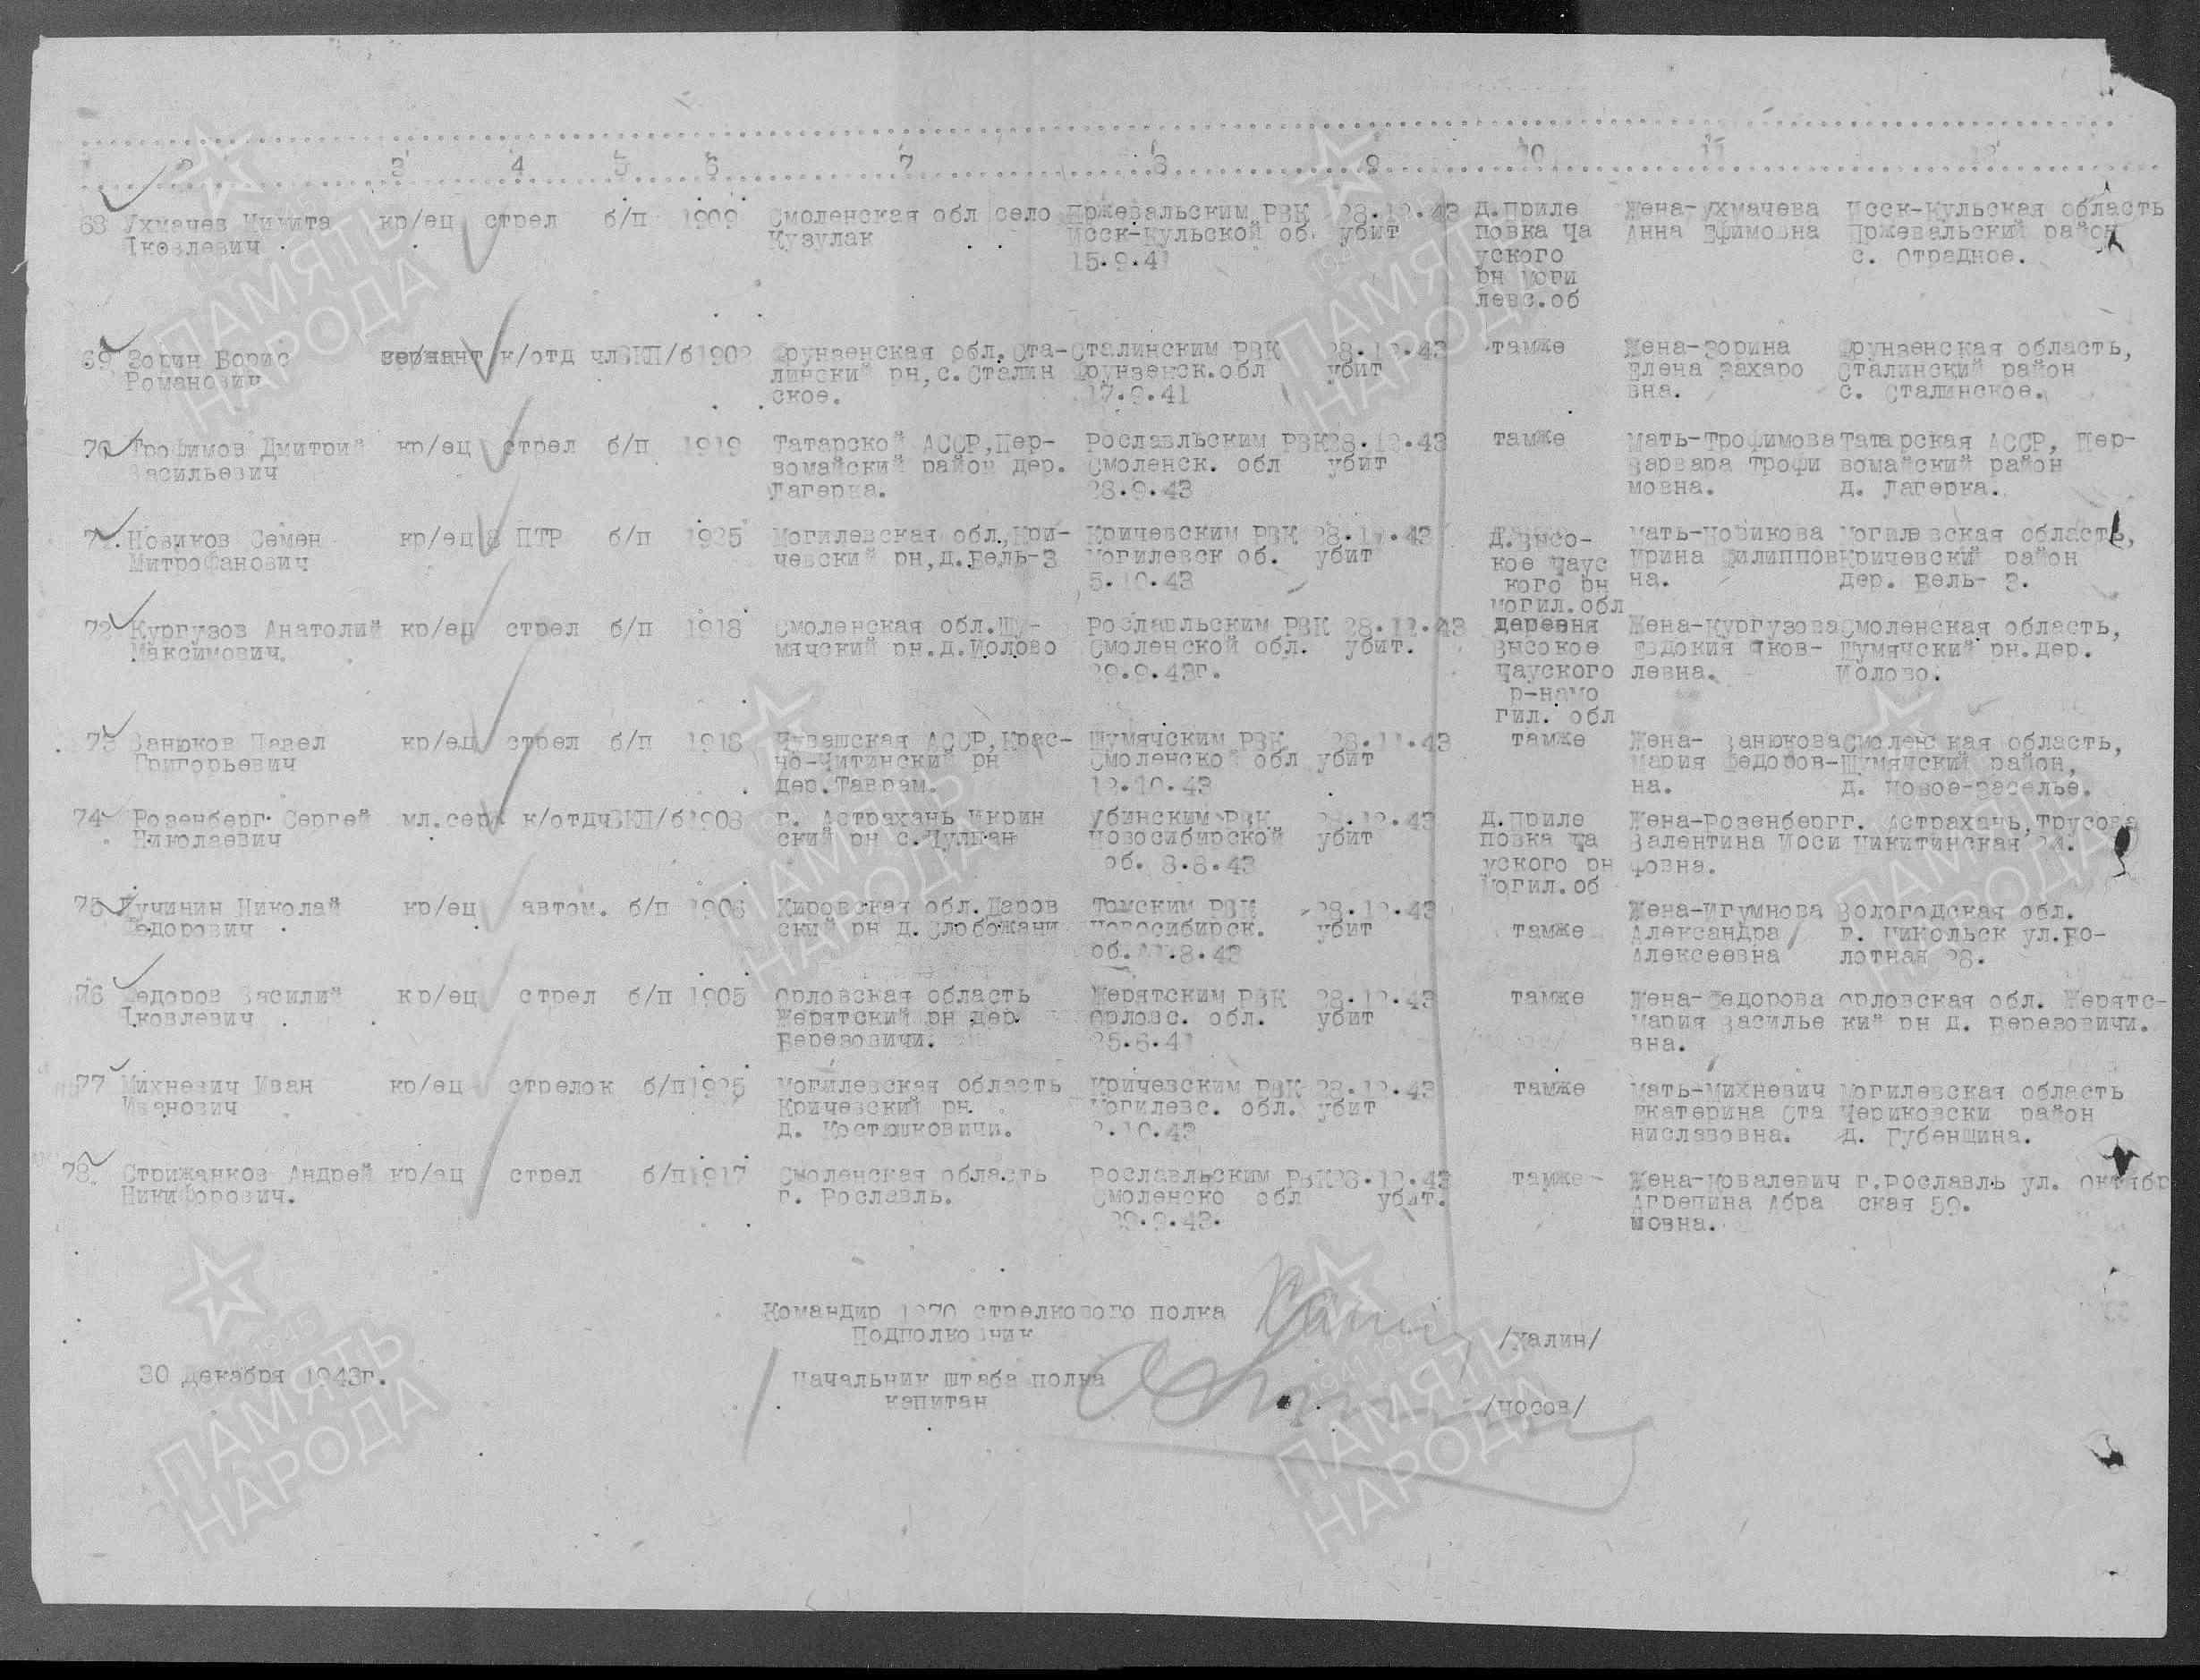 2 3 4 5 6 7 8 9 10 11 12
68 Ухмачев Никита кр/ец стрел б/п 1909 Смоленская обл село Пржевальским РВК 28.12.43 Д.Приле Жена-Ухмачева Исск-Кульская область
Яковлевич Кузулак Исск-Кульской об. убит повка Ча Анна Ефимовна Пржевальский район
15.9.41 уского с. Отрадное.
рн Моги
левс.об
69 Зорин Борис сержант к/отд члВКП/б1902 Фрунзенская обл. Ста- Сталинским РВК 28.12.43 тамже Жена-Зорина Фрунзенская область,
Романович линский рн, с. Сталин Фрунзенск.обл убит Елена Захаро Сталинский район
ское. 17.9.41 вна. с. Сталинское.
70 Трофимов Дмитрий кр/ец стрел б/п 1919 Татарской АССР, Пер- Рославльским РВК28.12.43 тамже Мать-Трофимова Татарская АССР, Пер-
Васильевич вомайский район дер. Смоленск. обл убит Варвара Трофи вомайский район
Лагерка. 28.9.43 мовна. д. Лагерка.
71. Новиков Семен кр/ец ПТР б/п 1925 Могилевская обл., Кри- Кричевским РВК 28.12.43 Д.Высо- Мать-Новикова Могилевская область,
Митрофанович чевский рн, д. Бель-3 Могилевск об. убит кое Чаус Ирина Филиппов Кричевский район
5.10.43 кого рн на. дер. Бель- 3.
Могил.обл
72 Кургузов Анатолий кр/ец стрел б/п 1918 Смоленская обл.Шу- Рославльским РВК 28.12.43 деревня Жена-Кургузова Смоленская область,
Максимович. мячский рн.д.Молово Смоленской обл. убит. Высокое Евдокия Яков- Шумячский рн.дер.
29.9.43г. Чауского левна. Молово.
р-наМо
гил. обл
73 Ванюков Павел кр/ец стрел б/п 1918 Чувашская АССР, Крас- Шумячским РВК 28.12.43 тамже Жена- Ванюкова Смоленская область,
Григорьевич но-Читинский рн Смоленской обл убит Мария Федоров- Шумячский район,
дер. Таврам. 12.10.43 на. д. Новое-Заселье.
74 Розенберг Сергей мл.серж к/отдчВКП/б1908 г. Астрахань Икрин Убинским РВК 28.12.43 Д.Приле Жена-Розенберг г. Астрахань, Трусова
Николаевич ский рн с.Чулпан Новосибирской убит повка Ча Валентина Иоси Никитинская 24.
об. 8.8.43 уского рн фовна.
Могил.об
75 Кучинин Николай кр/ец автом. б/п 1906 Кировская обл. Даров Томским РВК 28.12.43 Жена-Игумнова Вологодская обл.
Федорович ский рн Д. Слобожани Новосибирск. убит тамже Александра г. Никольск ул.Бо-
об. .8.43 Алексеевна лотная 28.
76 Федоров Василий кр/ец стрел б/п 1905 Орловская область Жерятским РВК 28.12.43 тамже Жена-Федорова Орловская обл. Жерятс-
Яковлевич Жерятский рн дер. Орловс. обл. убит Мария Василье кий рн Д. Березовичи.
Березовичи. 25.6.41 вна.
77 Михневич Иван кр/ец стрелок б/п1925 Могилевская область Кричевским РВК 28.12.43 тамже Мать-Михневич Могилевская область
Иванович Кричевский рн. Могилевс. обл. убит Екатерина Ста Чериковски район
д. Костюшковичи. 2.10.43 ниславовна. Д. Губенщина.
78. Стрижанков Андрей кр/ец стрел б/п1917 Смоленская область Рославльским РВК28.12.43 тамже Жена-Ковалевич г.Рославль ул. Октябр
Никифорович. г. Рославль. Смоленско обл убит. Агрепина Абра ская 59.
29.9.43. мовна.
Командир 1270 стрелкового полка
Подполковник /Халин/
30 декабря 1943г.
Начальник штаба полка
капитан /Носов/